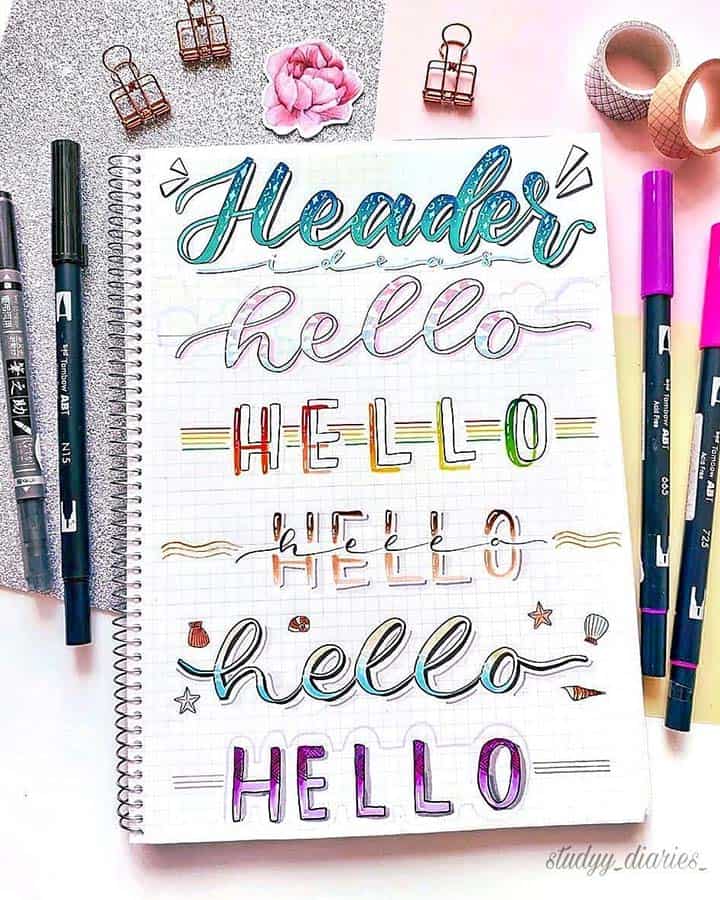 Header
ideas
hello
HELLO
HELLO
hello
hello
HELLO
Tombow ABT
N15
筆之助
Tombow ABT
Acid Free
665
Tombow ABT
Acid Free
725
studyy_diaries_